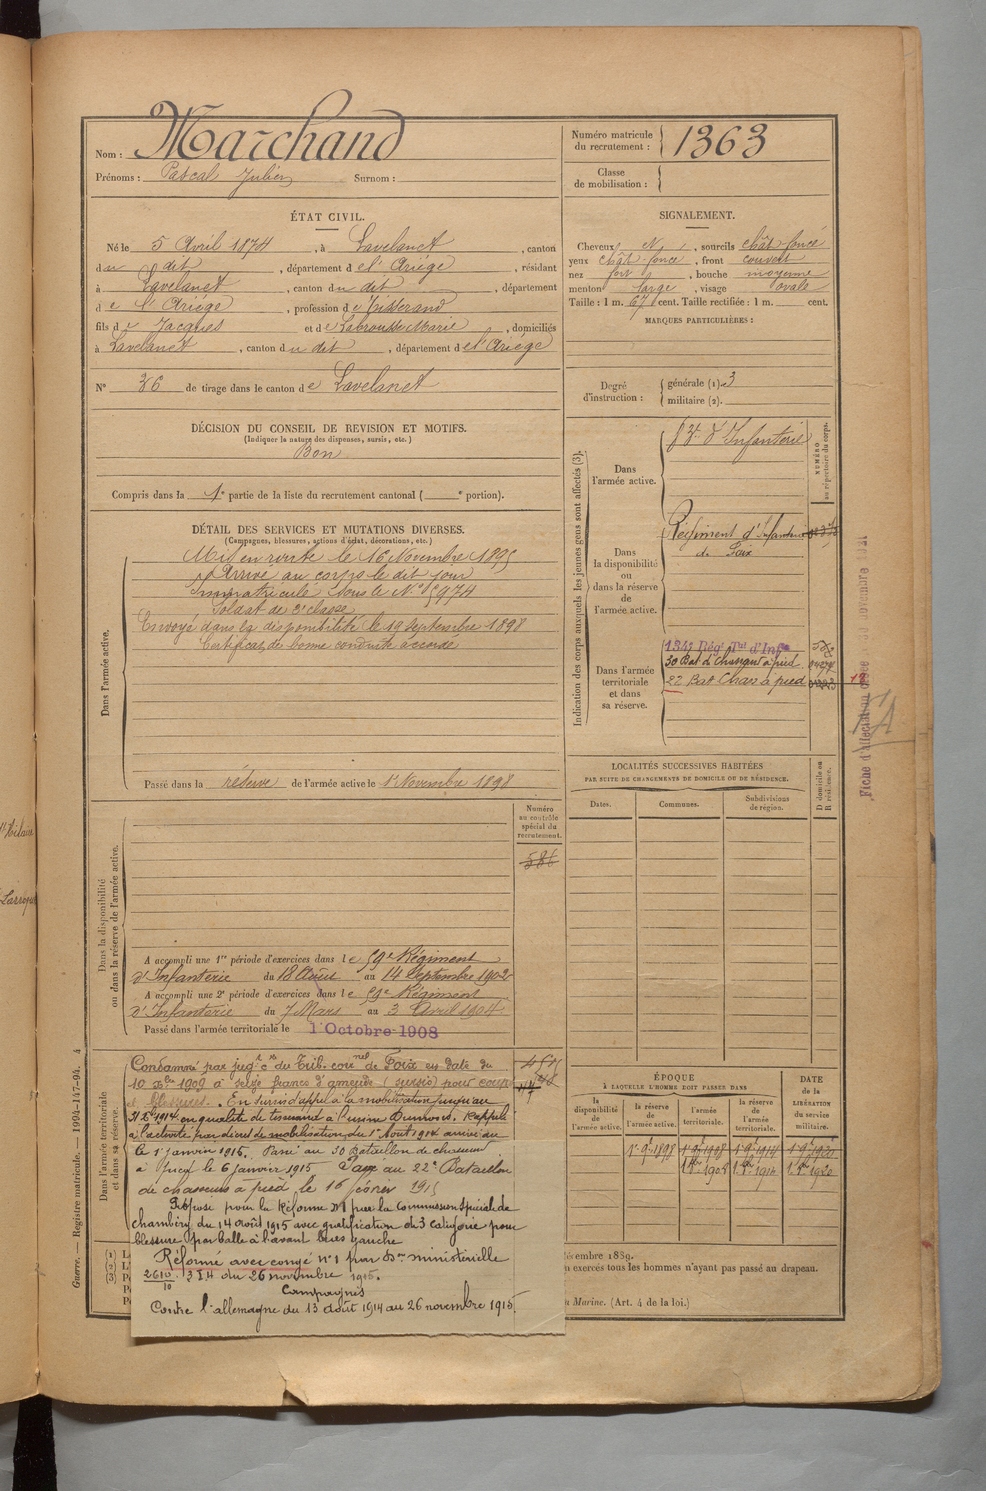 Nom : Marchand
Prénoms : Pascal Julien Surnom :
Numéro matricule du recrutement : 1363
Classe de mobilisation :
ÉTAT CIVIL.
Né le 5 Avril 1874, à Lavelanet, canton
du dit, département de l'Ariège, résidant
à Lavelanet, canton du dit, département
de l'Ariège, profession de Tisserand
fils de Jacques et de Labrousse Marie, domiciliés
à Lavelanet, canton du dit, département de l'Ariège
N° 36 de tirage dans le canton de Lavelanet
DÉCISION DU CONSEIL DE REVISION ET MOTIFS.
(Indiquer la nature des dispenses, sursis, etc.)
Bon
Compris dans la 1e partie de la liste du recrutement cantonal ( e portion).
DÉTAIL DES SERVICES ET MUTATIONS DIVERSES.
(Campagnes, blessures, actions d'éclat, décorations, etc.)
Dans l'armée active.
Mis en route le 16 Novembre 1895
Arrivé au corps le dit jour
Immatriculé sous le N°
Soldat de 2e classe
Envoyé dans la disponibilité le 19 Septembre 1898
Certificat de bonne conduite accordé
Passé dans la réserve de l'armée active le 1er Novembre 1898
Dans la disponibilité ou dans la réserve de l'armée active.
Numéro au contrôle spécial du recrutement.
586
A accompli une 1re période d'exercices dans le 59e Régiment
d'Infanterie du 18 Août au 14 Septembre 1902
A accompli une 2e période d'exercices dans le 59e Régiment
d'Infanterie du 7 Mars au 3 Avril 1904
Passé dans l'armée territoriale le 1er Octobre 1908
Dans l'armée territoriale et dans sa réserve.
Condamné par jugt du Trib. corrnel de Foix en date du
10 Xbre 1909 à seize francs d'amende (sursis) pour coups
et blessures. En sursis d'appel à la mobilisation jusqu'au
31 Xbre 1914 en qualité de tisserand à l'usine Dumons. Rappelé
à l'activité par décret de mobilisation du 1er Août 1914 arrivé au
le 1er janvier 1915. Passé au 30 Bataillon de chasseurs
à le 6 janvier 1915 Passé au 22e Bataillon
de chasseurs à pied le 16 février 1915
Proposé pour la Réforme N°1 par la commission spéciale de
chambéry du 14 août 1915 avec gratification de 3 catégorie pour
blessure par balle à l'avant bras gauche
Réformé avec congé n°1 par Don ministérielle
du 26 novembre 1915.
Campagnes
Contre l'allemagne du 13 août 1914 au 26 novembre 1915.
SIGNALEMENT.
Cheveux N, sourcils chât-foncé
yeux chât-foncé, front couvert
nez fort, bouche moyenne
menton large, visage ovale
Taille : 1 m. 67 cent. Taille rectifiée : 1 m. cent.
MARQUES PARTICULIÈRES :
Degré d'instruction : générale (1). 3
militaire (2).
Indication des corps auxquels les jeunes gens sont affectés (3).
NUMÉRO au répertoire du corps.
Dans l'armée active.
d'Infanterie
Dans la disponibilité ou dans la réserve de l'armée active.
Régiment d'Infanterie
de Foix
Dans l'armée territoriale et dans sa réserve.
134e Régt Tal d'Infie
30 Bat de Chasseurs à pied
22 Bat Chass à pied
LOCALITÉS SUCCESSIVES HABITÉES
PAR SUITE DE CHANGEMENTS DE DOMICILE OU DE RÉSIDENCE.
D domicile ou R résidence.
Dates. Communes. Subdivisions de région.
ÉPOQUE
À LAQUELLE L'HOMME DOIT PASSER DANS
DATE de la LIBÉRATION du service militaire.
la disponibilité de l'armée active. la réserve de l'armée active. l'armée territoriale. la réserve de l'armée territoriale.
écembre 1889.
n exercés tous les hommes n'ayant pas passé au drapeau.
a Marine. (Art. 4 de la loi.)
Guerre. — Registre matricule. — 1994-147-94. 4